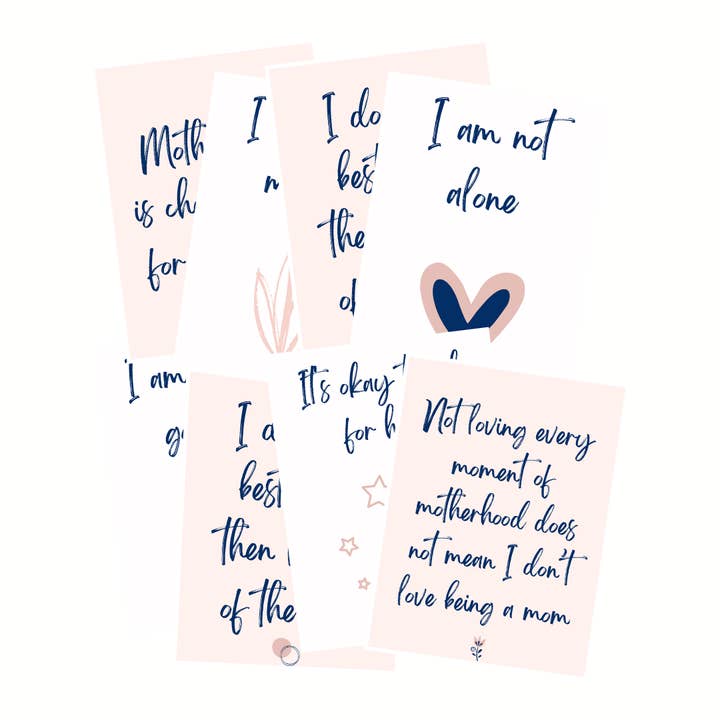 Moth
is ch
for
I
m
I do
best
the
of
I am not
alone
I am
g
I a
best
then
of the
It's okay t
for h
Not loving every
moment of
motherhood does
not mean I don't
love being a mom